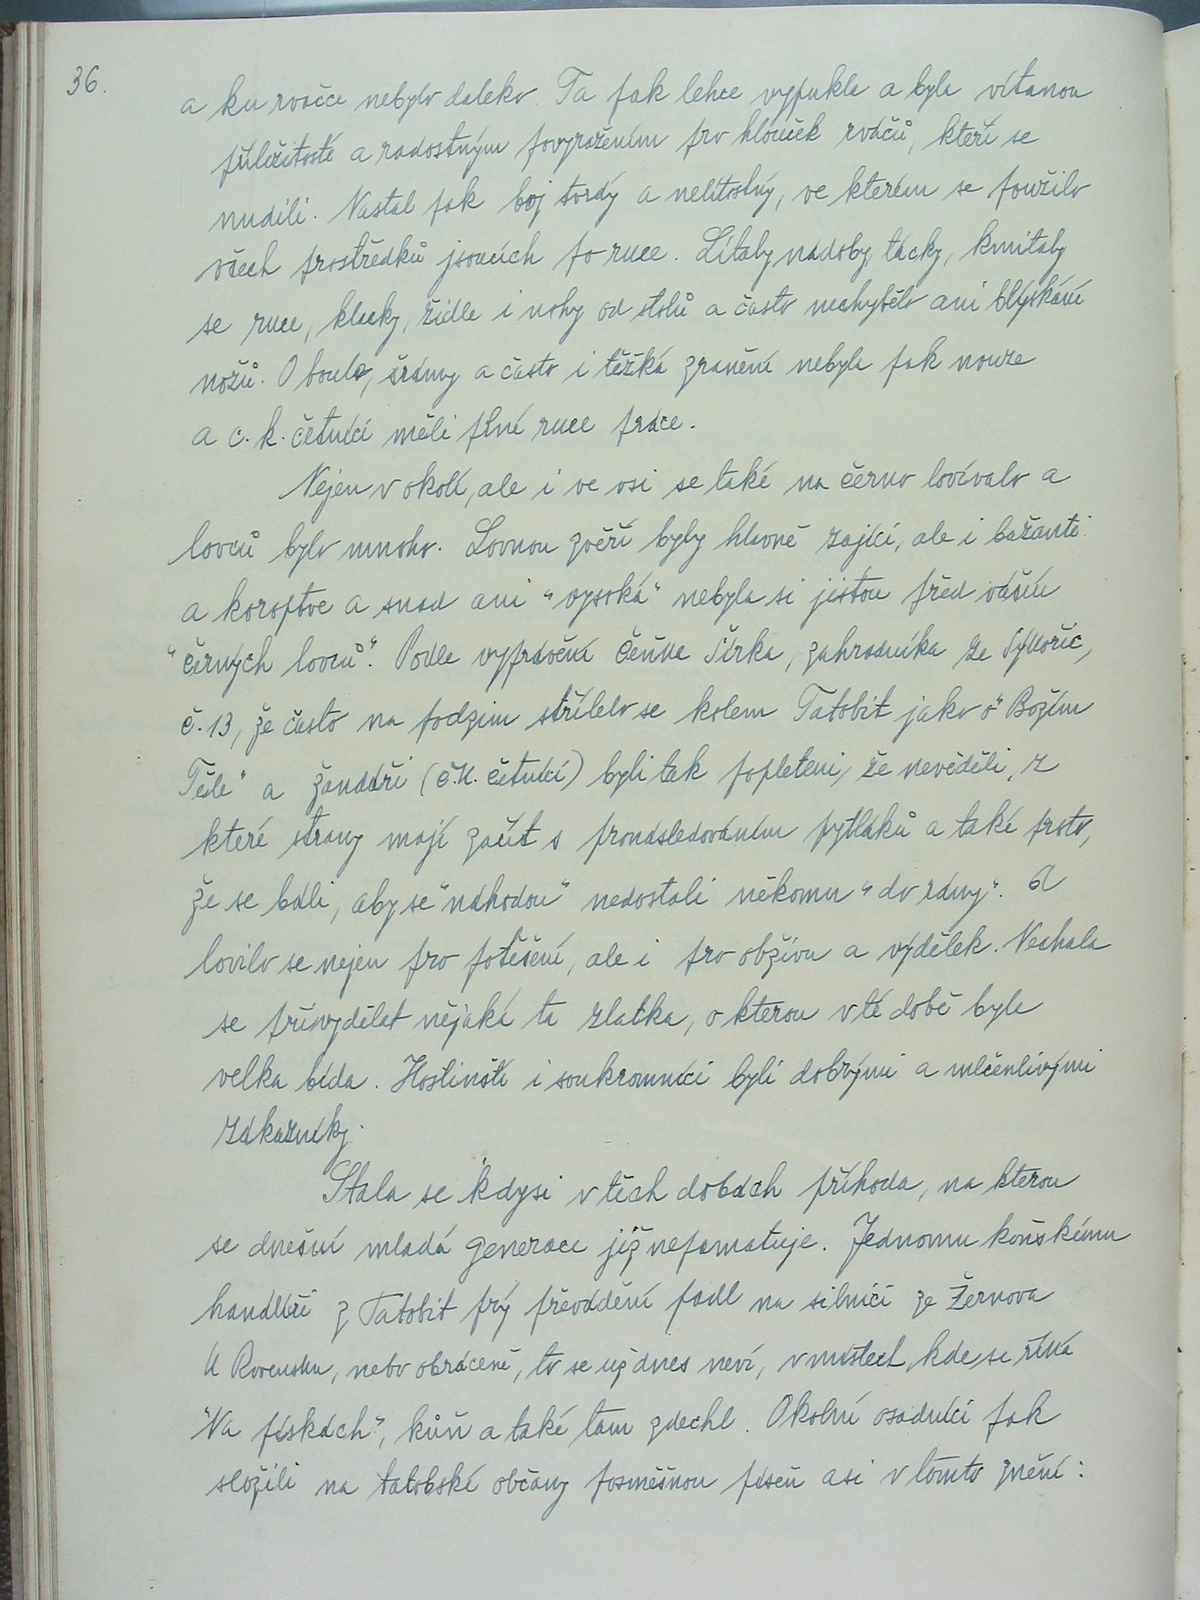 36.
a ku rvačce nebylo daleko. Ta pak lehce vypukla a byla vítanou
příležitostí a radostným povyražením pro hlouček rváčů, kteří se
nudili. Nastal pak boj tvrdý a nelítostný, ve kterém se použilo
všech prostředků jsoucích po ruce. Lítaly nádoby, tácky, kmitaly
se ruce, klacky, židle i nohy od stolů a často nechybělo ani blýskání
nožů. O boule, šrámy a často i těžká zranění nebyla pak nouze
a c. k. četníci měli plné ruce práce.
Nejen v okolí, ale i ve vsi se také na černo lovívalo a
lovců bylo mnoho. Lovnou zvěří byly hlavně zajíci, ale i bažanti
a koroptve a snad ani "vysoká" nebyla si jistou před vášní
"černých lovců". Podle vyprávění Čeňka Šírka, zahradníka ze Sýkořic,
č. 13, že často na podzim střílelo se kolem Tatobit jako o "Božím
Těle" a žandáři (c. k. četníci) byli tak popleteni, že nevěděli, z
které strany mají začít s pronásledováním pytláků a také proto,
že se báli, aby se "náhodou" nedostali někomu "do rány". A
lovilo se nejen pro potěšení, ale i pro obživu a výdělek. Nechala
se přivydělat nějaká ta zlatka, o kterou v té době byla
velká bída. Hostinští i soukromníci byli dobrými a mlčenlivými
zákazníky.
Stala se kdysi v těch dobách příhoda, na kterou
se dnešní mladá generace již nepamatuje. Jednomu koňskému
handlíři z Tatobit při převádění padl na silnici ze Žernova
k Rovensku, nebo obráceně, to se už dnes neví, v místech, kde se říká
"Na pískách", kůň a také tam zdechl. Okolní osadníci pak
složili na tatobské občany posměšnou píseň asi v tomto znění: